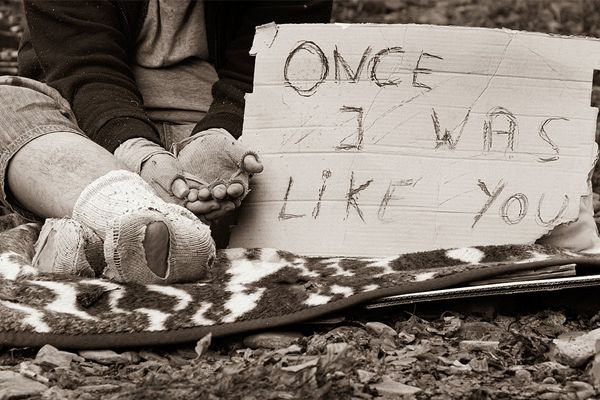 ONCE
I WAS
LiKE YOU